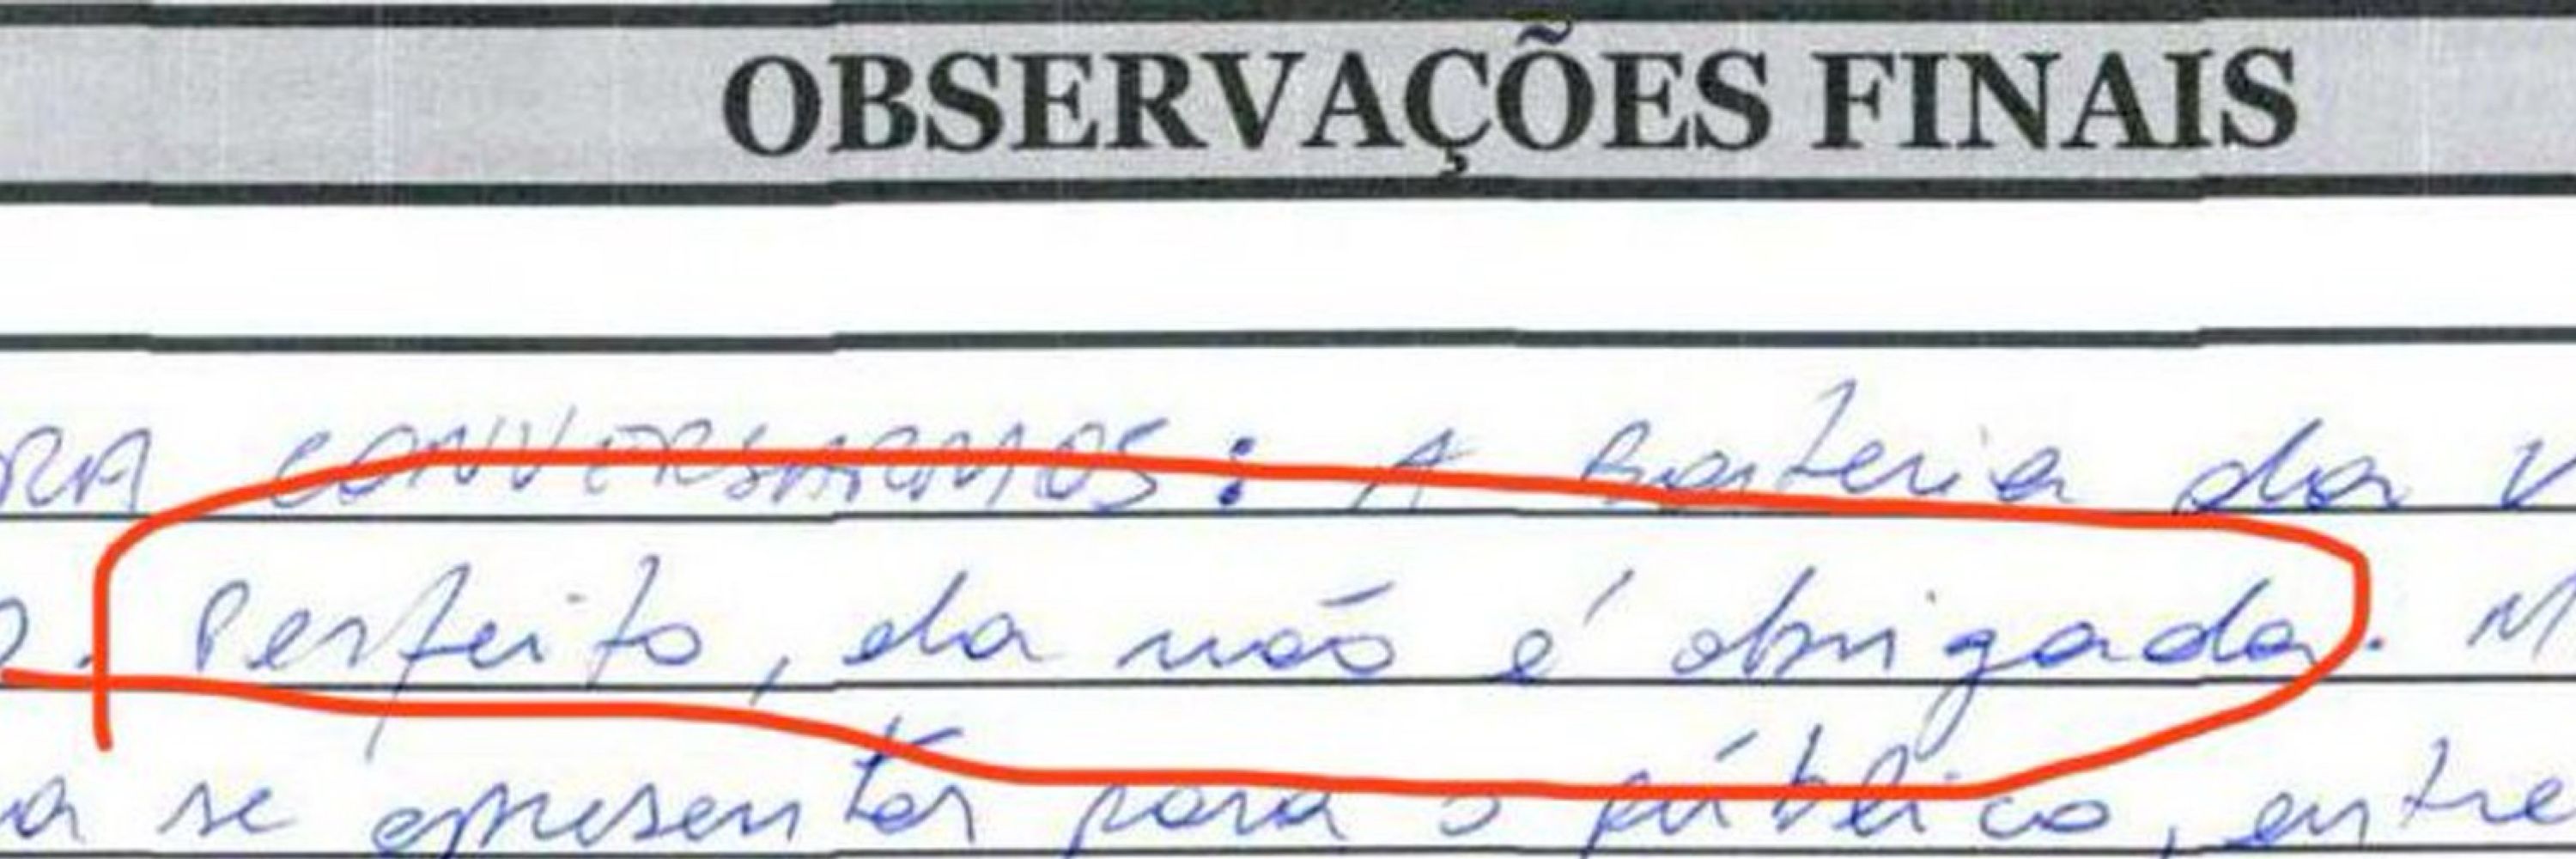 OBSERVAÇÕES FINAIS
RA CONVERSARMOS: A Bateria da V
o. Perfeito, ela não é obrigada. M
a se apresentar para o público, entre